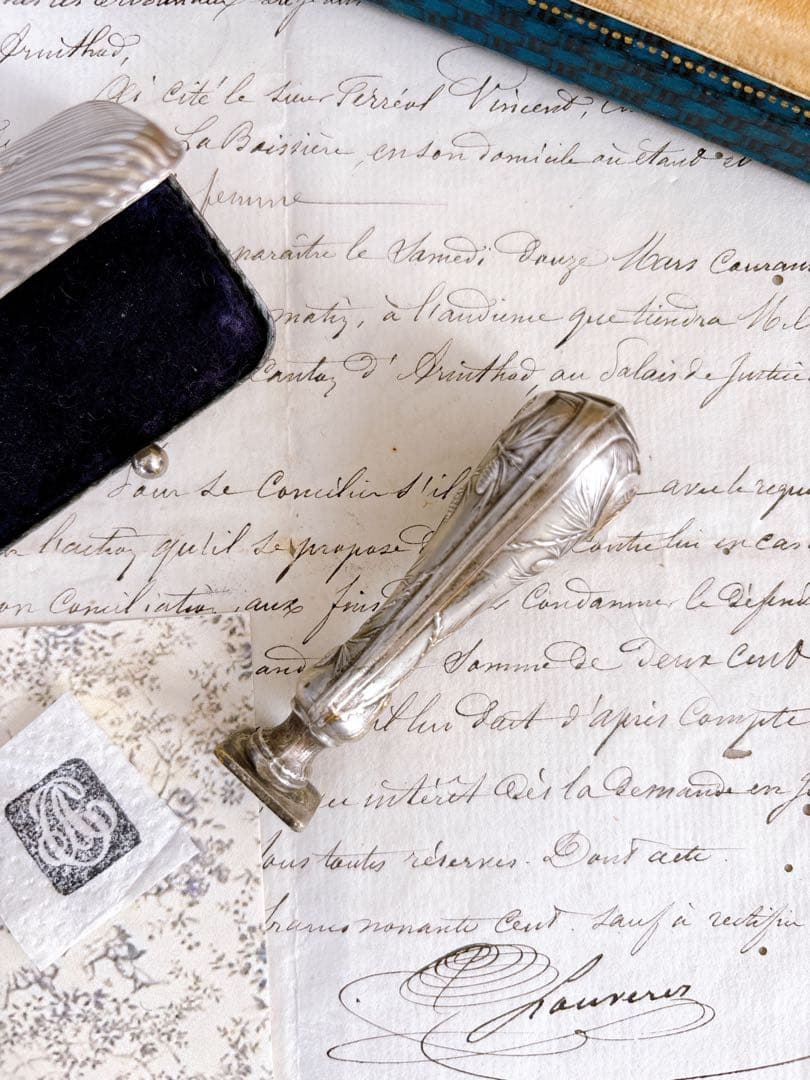 Arinthod,
cité le sieur Perréal Vincent,
La Boissière, en son domicile où étant et
femme
paraître le Samedi douze Mars courant
matin, à l'audience que tiendra M. le
Canton d'Arinthod, au Palais de Justice
Pour se concilier s'il avec le requ
l'action qu'il se propose contre lui en cas
on conciliation, aux fins condamner le défen
somme de deux cent
il lui doit d'après compte
intérêt dès la demande en
ous toutes réserves. Dont acte.
francs nonante cent. sauf à rectifier